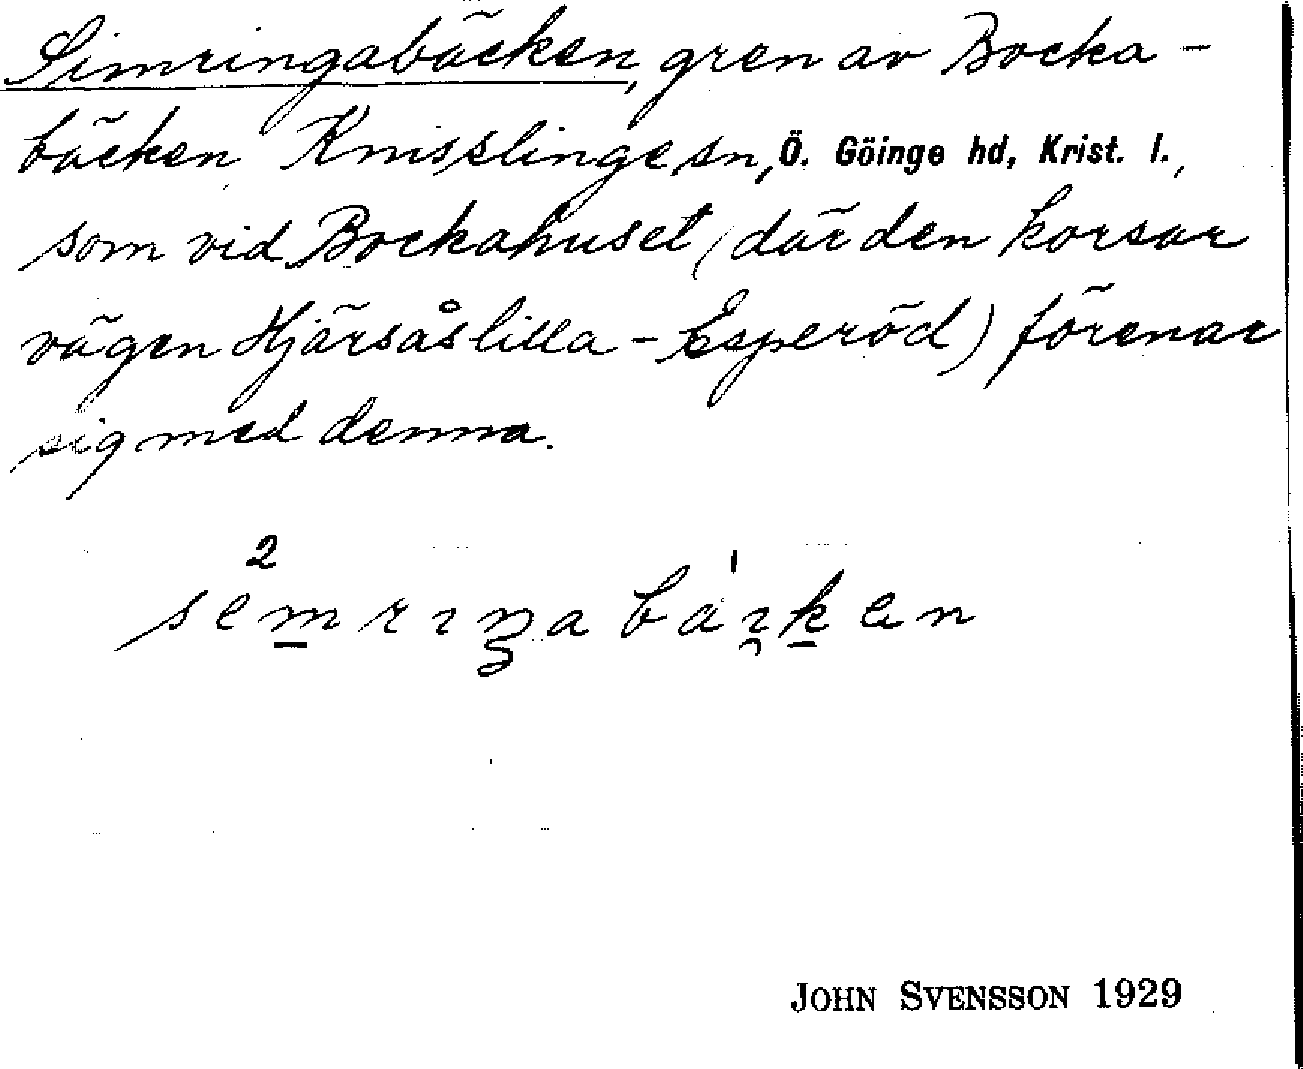 Simringabäcken, gren av Bocka-
bäcken Knisslinge sn, Ö. Göinge hd, Krist. l.,
som vid Bockahuset (där den korsar
vägen Hjärsåslilla - Esperöd) förenar
sig med denna.
2 ˈ
semrıŋabaı̯ken
JOHN SVENSSON 1929